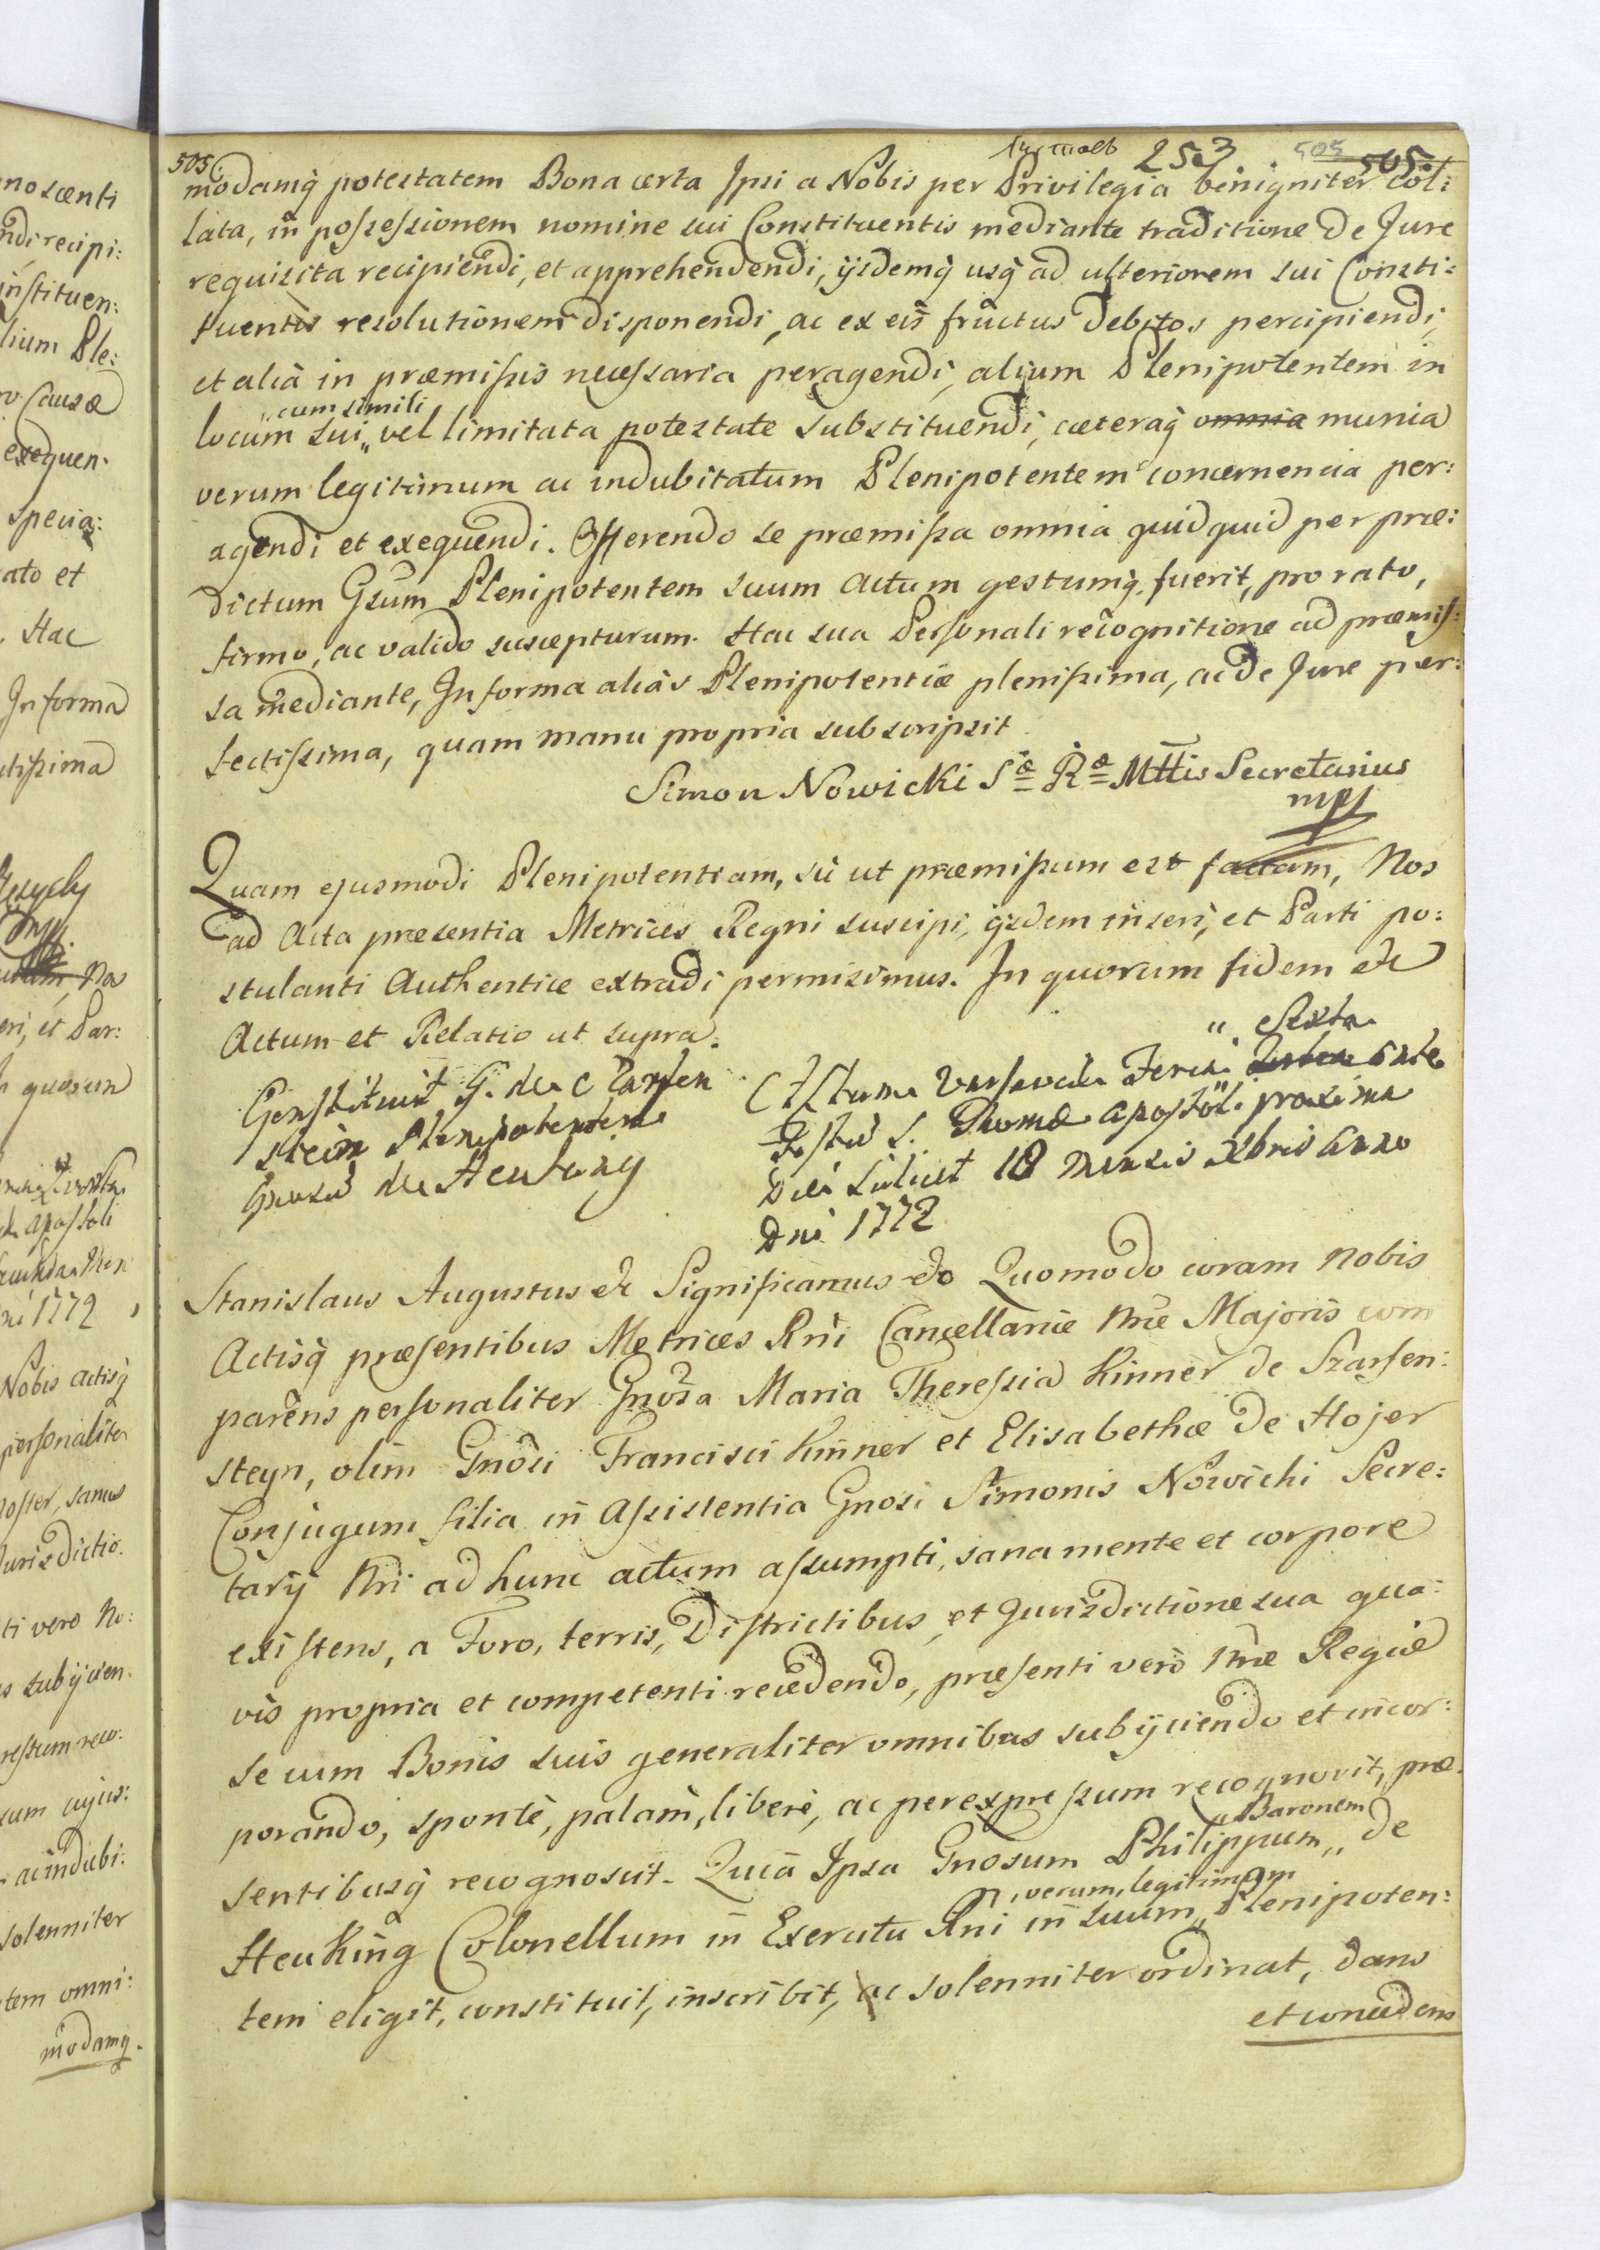 505
253 . 505 505.
modamq̃ potestatem Bona certa Ipsi a Nobis per Privilegia benigniter col:
lata, in possessionem nomine sui Constituentis mediante traditione de Jure
requisita recipiendi, et apprehendendi, ijsdemq̃ usq̃ ad ulteriorem sui Consti:
tuentis resolutionem disponendi, ac ex eis fructus debitos percipiendi,
et alia in præmissis necessaria peragendi, alium Plenipotentem in
locum sui „cum simili„ vel limitata potestate substituendi, cæteraq̃ omnia munia
verum legitimum ac indubitatum Plenipotentem concernencia per:
agendi et exequendi. Offerendo se præmissa omnia quidquid per præ:
dictum Gsum Plenipotentem suum actum gestumq̃ fuerit, pro rato,
firmo, ac valido suscepturum. Hac sua Personali recognitione ad præmis:
sa mediante, In forma alias Plenipotentiæ plenissima, ac de Jure per:
fectissima, quam manu propria subscripsit
Simon Nowicki Sæ Ræ Mttis Secretarius
mpp
Quam ejusmodi Plenipotentiam, sic ut præmissum est factam, Nos
ad Acta præsentia Metrices Regni suscipi, ijsdem inseri, et Parti po:
stulanti Authentice extradi permisimus. In quorum fidem &c
Actum et Relatio ut supra.
Constituit G. de Szarfen
stein Plenipotentem
Gnosum de Heuking
Actum Varsaviæ Feria „Sexta ante
Festum S. Thomæ Apostoli proxima
Die scilicet 18 Mensis Xbris Anno
Dni 1772
Stanislaus Augustus &c Significamus &c Quomodo coram Nobis
Actisq̃ præsentibus Metrices Rni Cancellariæ Nræ Majoris com
parens personaliter Gnosa Maria Theressia Kinner de Szarfen:
steyn, olim Gnosi Francisci Kinner et Elisabethæ de Hojer
Conjugum filia in Assistentia Gnosi Simonis Nowicki Secre:
tarij Nri ad hunc actum assumpti, sana mente et corpore
existens, a Foro, terris, Districtibus, et Jurisdictione sua qua:
vis propria et competenti recedendo, præsenti vero Nræ Regiæ
se cum Bonis suis generaliter omnibus subijciendo et incor:
porando, sponte, palam, libere, ac per expressum recognovit, præ
sentibusq̃ recognoscit. Quia Ipsa Gnosum Philippum „Baronem„ de
Heuking Colonellum in Exercitu Rni in suum „verum, legitimum„ Plenipoten:
tem eligit, constituit, inscribit, ac solenniter ordinat, dans
et concedens